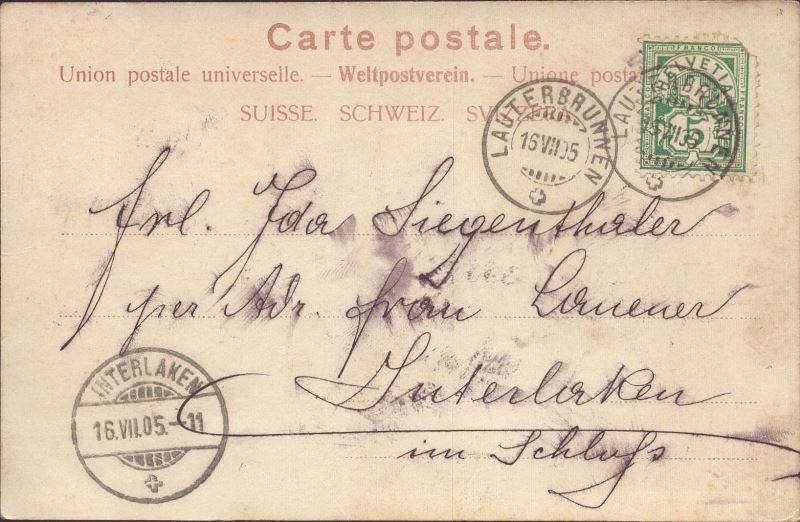 Carte postale.
Union postale universelle. — Weltpostverein. — Unione posta
SUISSE. SCHWEIZ. SVIZZERA.
FRANCO
HELVETIA
5
LAUTERBRUNNEN
16.VII.05
LAUTERBRUNNEN
16.VII.05
Frl. Ida Siegenthaler
per Adr. Frau Lauener
Interlaken
im Schloß
INTERLAKEN
16.VII.05.-11